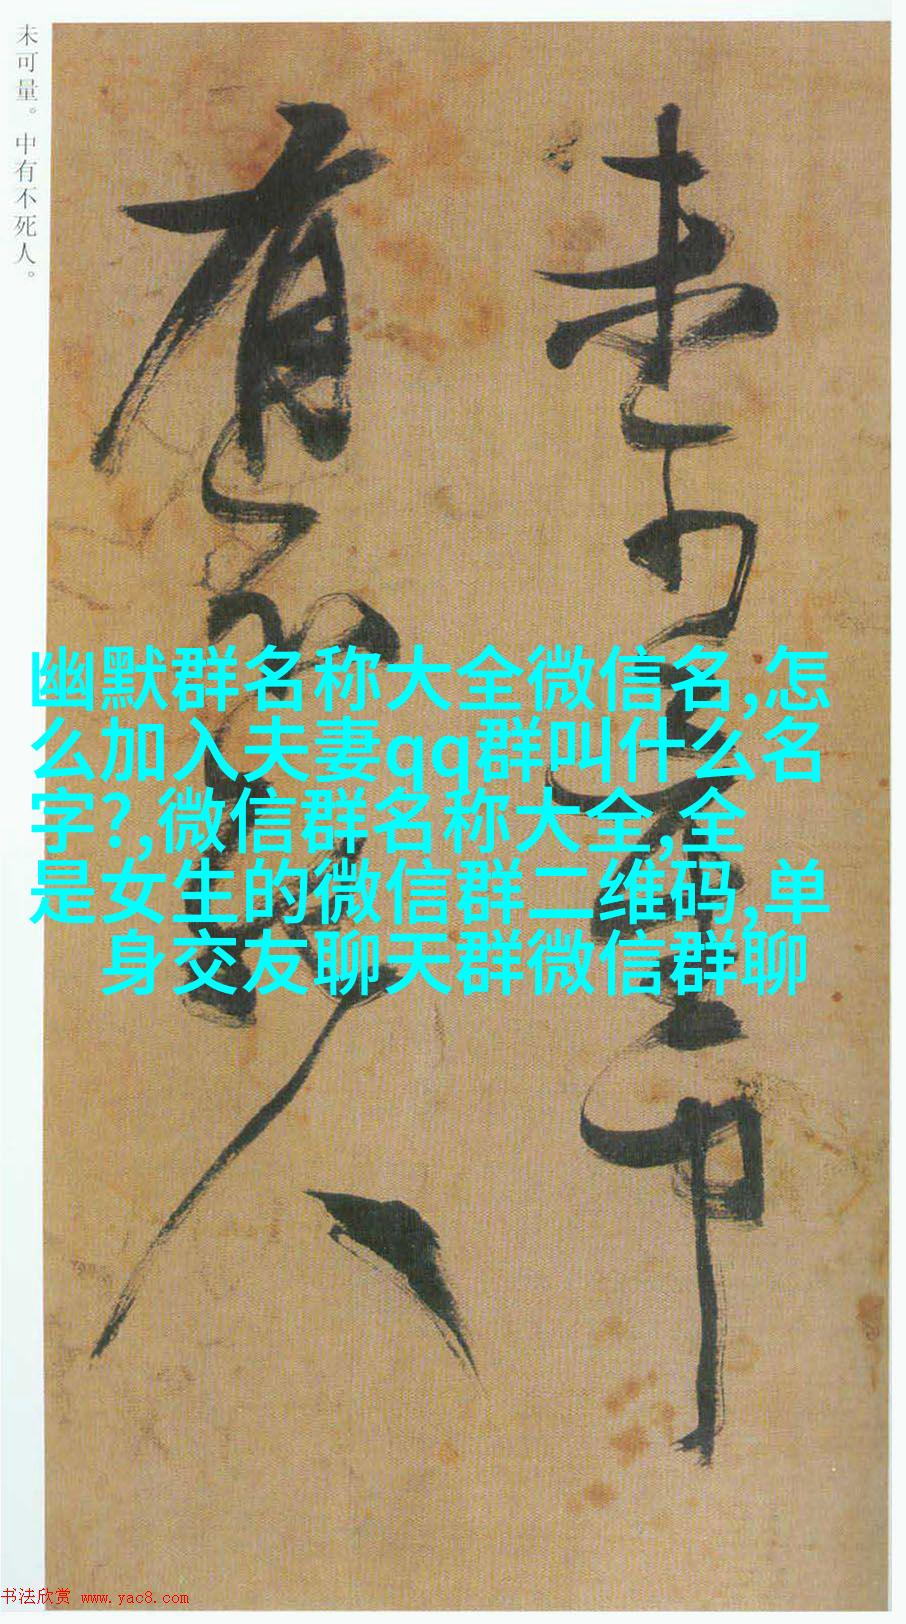 未可量。中有不死人。
未可量中
有不死人
幽默群名称大全微信名,怎
么加入夫妻qq群叫什么名
字?,微信群名称大全,全
是女生的微信群二维码,单
身交友聊天群微信群聊
书法欣赏 www.yac8.com